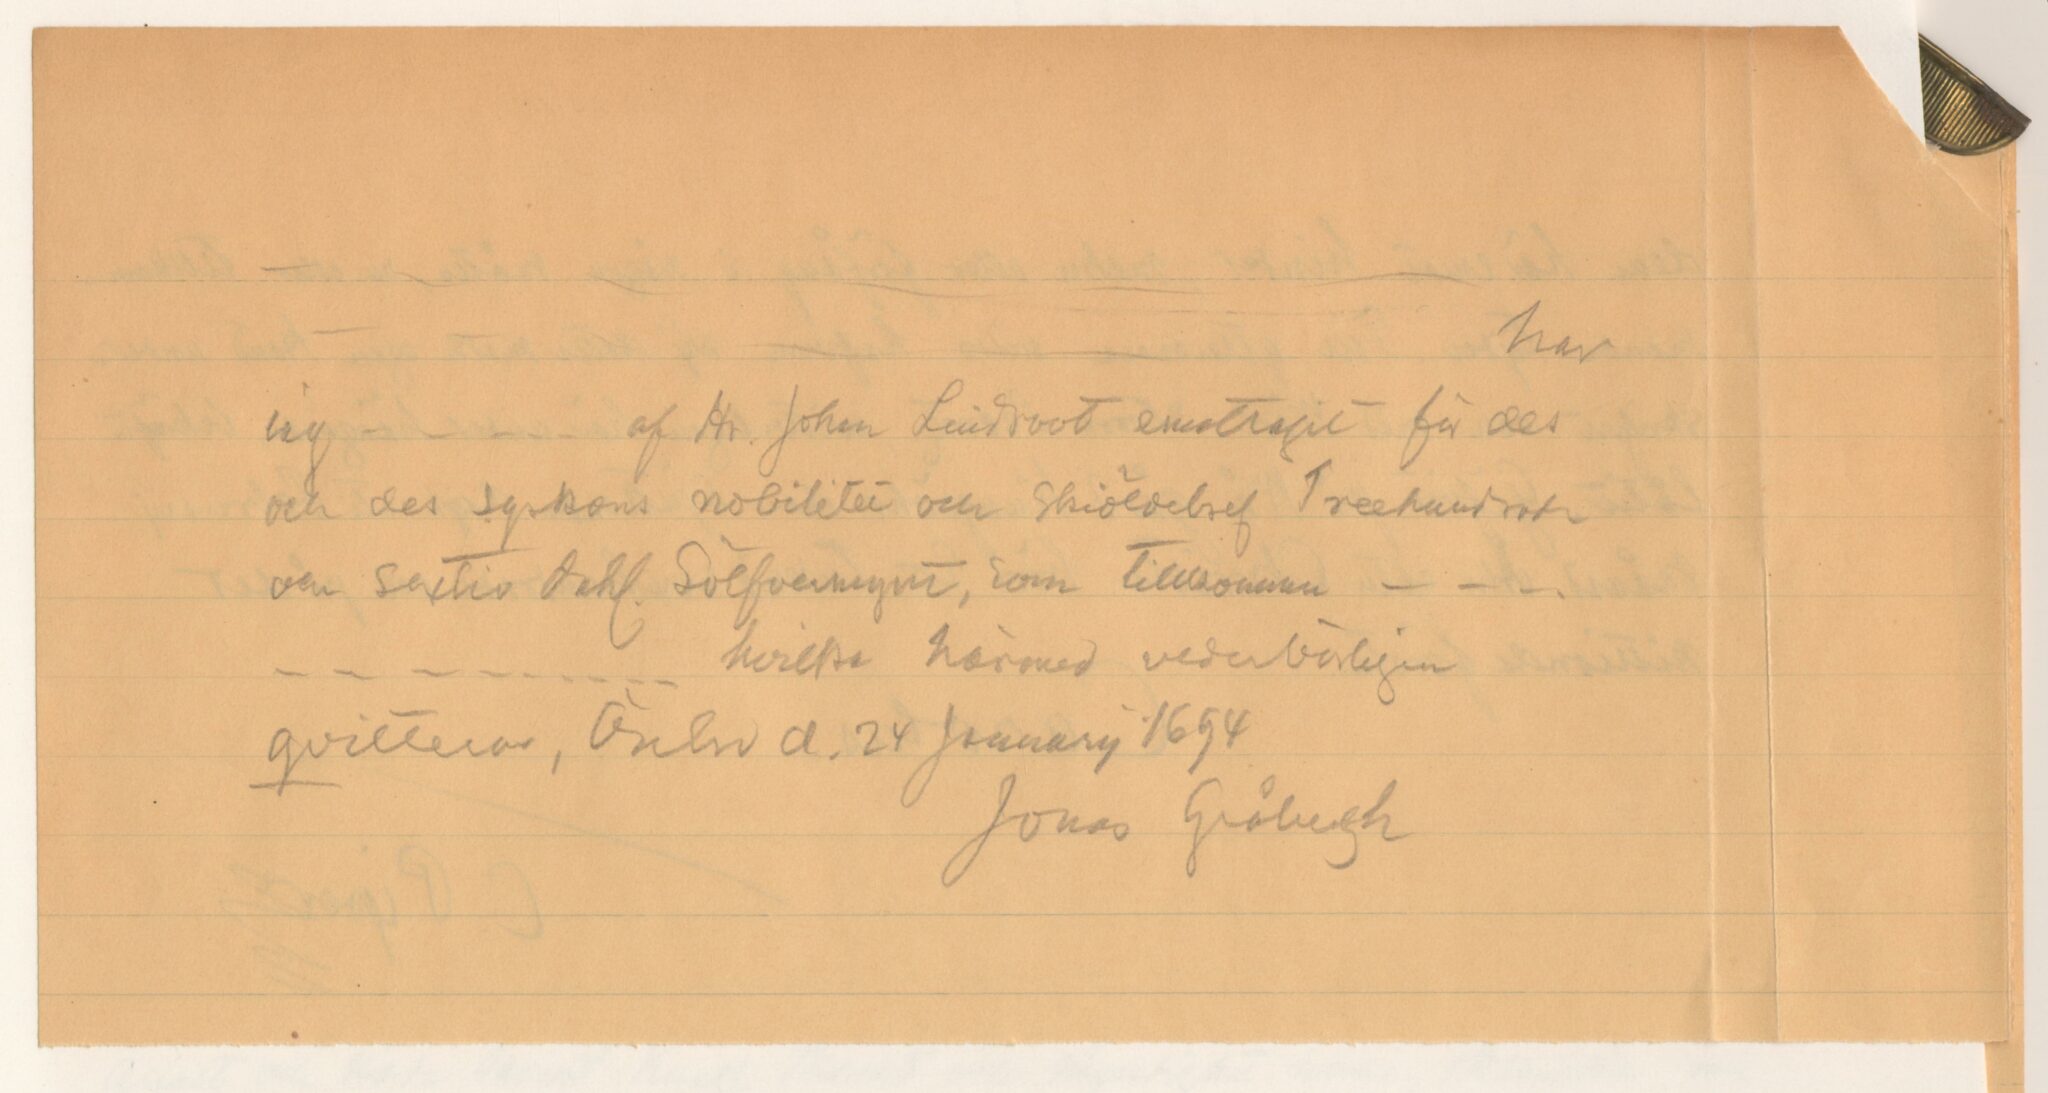 har
iag - - - - - af Hr. Johan Lindroot emottagit för des
och des syskons nobilitet och Skiöldebref Treehundrade
och sextio dahl. Sölfvermynt, som tillkomma - - -
- - - - - - - - - hvilka härmed vederbörligen
qvitteras, Örebro d. 24 January 1694
Jonas Gråbergh